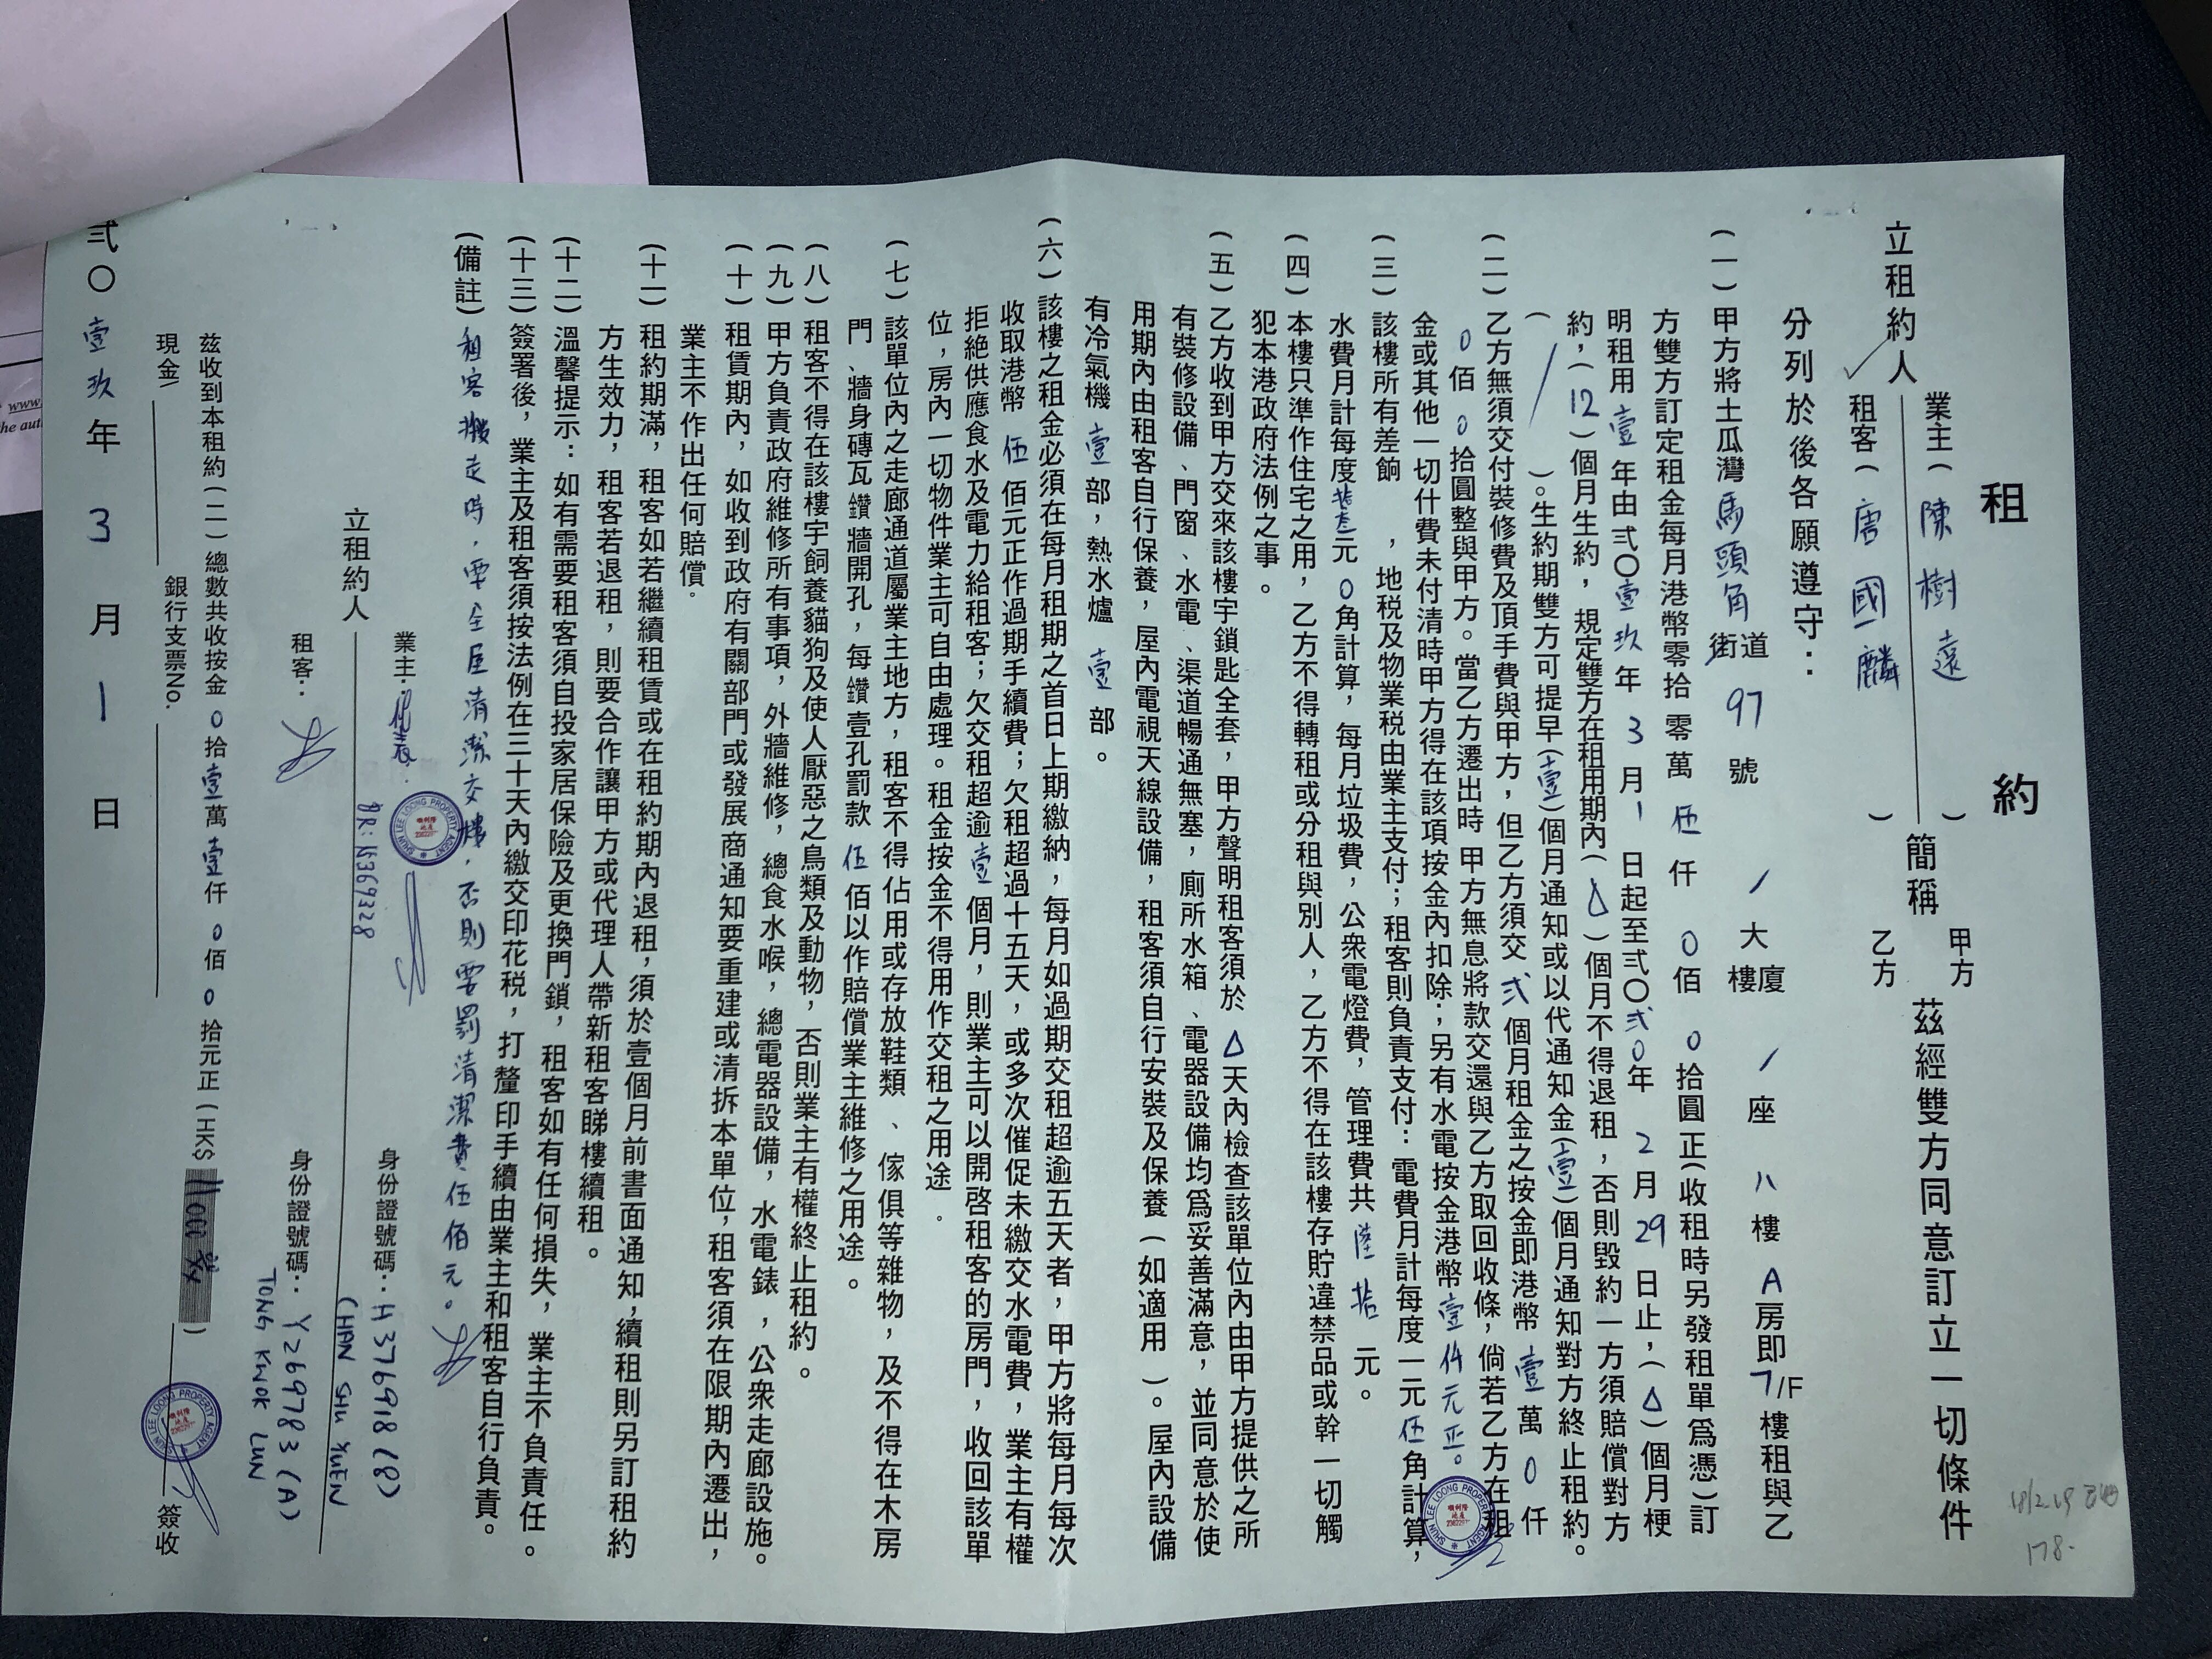 租約
立租約人
業主（陳樹遠）
租客（唐國麟）
簡稱
甲方
乙方
茲經雙方同意訂立一切條件
分列於後各願遵守：
（一）甲方將土瓜灣馬頭角街道97號 / 大廈樓 / 座 八樓A房即7/F樓租與乙
方雙方訂定租金每月港幣零拾零萬伍仟0佰0拾圓正（收租時另發租單為憑）訂
明租用壹年由弍〇壹玖年3月1日起至弍〇弍0年2月29日止，（△）個月梗
約，（12）個月生約，規定雙方在租用期內（△）個月不得退租，否則毀約一方須賠償對方
（/）。生約期雙方可提早（壹）個月通知或以代通知金（壹）個月通知對方終止租約。
（二）乙方無須交付裝修費及頂手費與甲方，但乙方須交弍個月租金之按金即港幣壹萬0仟
0佰0拾圓整與甲方。當乙方遷出時 甲方無息將款交還與乙方取回收條，倘若乙方在租
金或其他一切什費未付清時甲方得在該項按金內扣除；另有水電按金港幣壹仟元正。
（三）該樓所有差餉，地税及物業税由業主支付；租客則負責支付：電費月計每度一元伍角計算，
水費月計每度拾元0角計算，每月垃圾費，公衆電燈費，管理費共陸拾元。
（四）本樓只準作住宅之用，乙方不得轉租或分租與別人，乙方不得在該樓存貯違禁品或幹一切觸
犯本港政府法例之事。
（五）乙方收到甲方交來該樓宇鎖匙全套，甲方聲明租客須於△天內檢查該單位內由甲方提供之所
有裝修設備、門窗、水電、渠道暢通無塞，廁所水箱、電器設備均爲妥善滿意，並同意於使
用期內由租客自行保養，屋內電視天線設備，租客須自行安裝及保養（如適用）。屋內設備
有冷氣機壹部，熱水爐壹部。
（六）該樓之租金必須在每月租期之首日上期繳納，每月如過期交租超逾五天者，甲方將每月每次
收取港幣伍佰元正作過期手續費；欠租超過十五天，或多次催促未繳交水電費，業主有權
拒絶供應食水及電力給租客；欠交租超逾壹個月，則業主可以開啓租客的房門，收回該單
位，房內一切物件業主可自由處理。租金按金不得用作交租之用途。
（七）該單位內之走廊通道屬業主地方，租客不得佔用或存放鞋類、傢俱等雜物，及不得在木房
門、牆身磚瓦鑽牆開孔，每鑽壹孔罰款伍佰以作賠償業主維修之用途。
（八）租客不得在該樓宇飼養貓狗及使人厭惡之鳥類及動物，否則業主有權終止租約。
（九）甲方負責政府維修所有事項，外牆維修，總食水喉，總電器設備，水電錶，公衆走廊設施。
（十）租賃期內，如收到政府有關部門或發展商通知要重建或清拆本單位，租客須在限期內遷出，
業主不作出任何賠償。
（十一）租約期滿，租客如若繼續租賃或在租約期內退租，須於壹個月前書面通知，續租則另訂租約
方生效力，租客若退租，則要合作讓甲方或代理人帶新租客睇樓續租。
（十二）溫馨提示：如有需要租客須自投家居保險及更換門鎖，租客如有任何損失，業主不負責任。
（十三）簽署後，業主及租客須按法例在三十天內繳交印花税，打釐印手續由業主和租客自行負責。
（備註）租客搬走時，要全屋清潔交樓，否則要罰清潔費伍佰元。
立租約人
業主：代表
身份證號碼：H376918(8)
BR: 16369328
(HAN SHU YUEN
租客：
身份證號碼：Y269783(A)
TONG KWOK LUN
茲收到本租約（二）總數共收按金0拾壹萬壹仟0佰0拾元正（HK$ 11000）
現金\
銀行支票No.
簽收
弍〇壹玖年3月1日
SHUN LEE LOONG PROPERTY AGENT
順利隆
地產
SHUN LEE LOONG PROPERTY AGENT
順利隆
地產
SHUN LEE LOONG PROPERTY AGENT
順利隆
地產
178-
www.
the aut